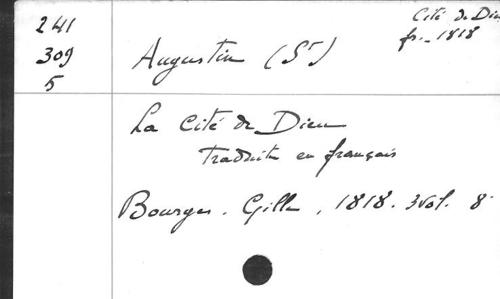 241
309
5
Cité de Dieu
fr. 1818
Augustin (St)
La Cité de Dieu
traduite en français
Bourges. Gille, 1818. 3 vol. 8°